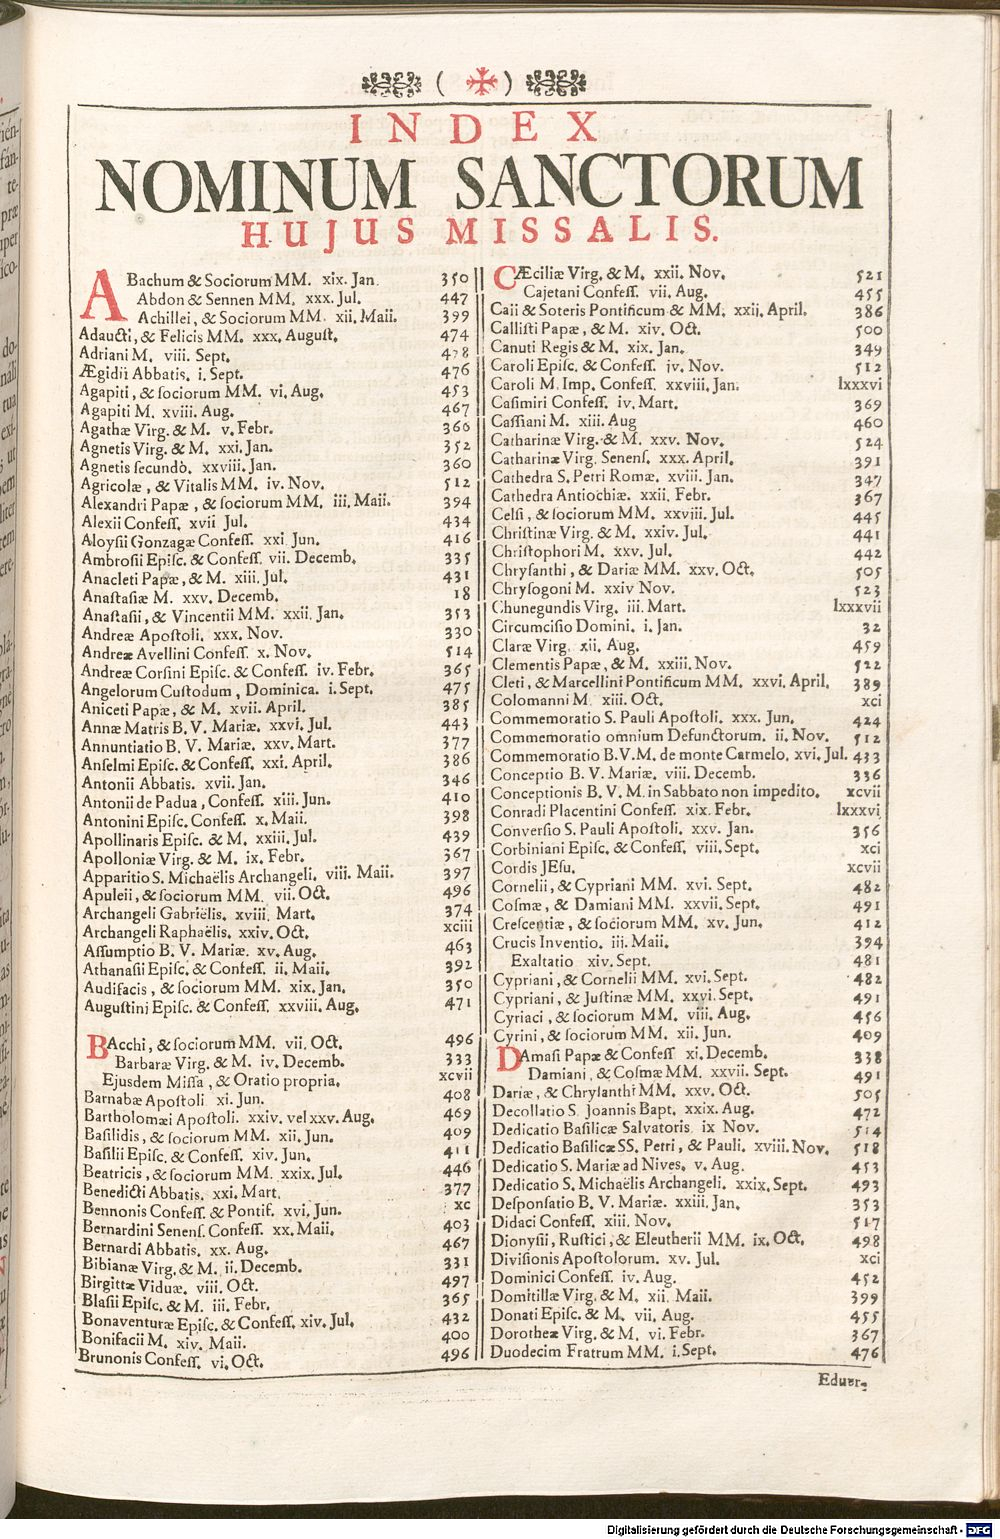 ( ✠ )
INDEX
NOMINUM SANCTORUM
HUJUS MISSALIS.
ABachum & Sociorum MM. xix. Jan. 350
Abdon & Sennen MM. xxx. Jul. 447
Achillei, & Sociorum MM. xii. Maii. 399
Adaucti, & Felicis MM. xxx. Auguſt. 474
Adriani M. viii. Sept. 478
Ægidii Abbatis. i. Sept. 476
Agapiti, & ſociorum MM. vi. Aug. 453
Agapiti M. xviii. Aug. 467
Agathæ Virg. & M. v. Febr. 366
Agnetis Virg. & M. xxi. Jan. 352
Agnetis ſecundò. xxviii. Jan. 360
Agricolæ, & Vitalis MM. iv. Nov. 512
Alexandri Papæ, & ſociorum MM. iii. Maii. 394
Alexii Confeſſ. xvii Jul. 434
Aloyſii Gonzagæ Confeſſ. xxi Jun. 416
Ambroſii Epiſc. & Confeſſ. vii. Decemb. 335
Anacleti Papæ, & M. xiii. Jul. 431
Anaſtaſiæ M. xxv. Decemb. 18
Anaſtaſii, & Vincentii MM. xxii. Jan. 353
Andreæ Apoſtoli. xxx. Nov. 330
Andreæ Avellini Confeſſ. x. Nov. 514
Andreæ Corſini Epiſc. & Confeſſ. iv. Febr. 365
Angelorum Cuſtodum, Dominica. i. Sept. 475
Aniceti Papæ, & M. xvii. April. 385
Annæ Matris B. V. Mariæ. xxvi. Jul. 443
Annuntiatio B. V. Mariæ. xxv. Mart. 377
Anſelmi Epiſc. & Confeſſ. xxi. April. 386
Antonii Abbatis. xvii. Jan. 346
Antonii de Padua, Confeſſ. xiii. Jun. 410
Antonini Epiſc. Confeſſ. x. Maii. 398
Apollinaris Epiſc. & M. xxiii. Jul. 439
Apolloniæ Virg. & M. ix. Febr. 367
Apparitio S. Michaëlis Archangeli. viii. Maii. 397
Apuleii, & ſociorum MM. vii. Oct. 496
Archangeli Gabriëlis. xviii. Mart. 374
Archangeli Raphaëlis. xxiv. Oct. xciii
Aſſumptio B. V. Mariæ. xv. Aug. 463
Athanaſii Epiſc. & Confeſſ. ii. Maii. 392
Audifacis, & ſociorum MM. xix. Jan. 350
Auguſtini Epiſc. & Confeſſ. xxviii. Aug. 471
BAcchi, & ſociorum MM. vii. Oct. 496
Barbaræ Virg. & M. iv. Decemb. 333
Ejusdem Miſſa, & Oratio propria. xcvii
Barnabæ Apoſtoli xi. Jun. 408
Bartholomæi Apoſtoli. xxiv. vel xxv. Aug. 469
Baſilidis, & ſociorum MM. xii. Jun. 409
Baſilii Epiſc. & Confeſſ. xiv. Jun. 411
Beatricis, & ſociorum MM. xxix. Jul. 446
Benedicti Abbatis. xxi. Mart. 377
Bennonis Confeſſ. & Pontif. xvi. Jun. xc
Bernardini Senenſ. Confeſſ. xx. Maii. 403
Bernardi Abbatis. xx. Aug. 467
Bibianæ Virg. & M. ii. Decemb. 331
Birgittæ Viduæ. viii. Oct. 497
Blaſii Epiſc. & M. iii. Febr. 365
Bonaventuræ Epiſc. & Confeſſ. xiv. Jul. 432
Bonifacii M. xiv. Maii. 400
Brunonis Confeſſ. vi. Oct. 496
CÆciliæ Virg. & M. xxii. Nov. 521
Cajetani Confeſſ. vii. Aug. 455
Caii & Soteris Pontificum & MM. xxii. April. 386
Calliſti Papæ, & M. xiv. Oct. 500
Canuti Regis & M. xix. Jan. 349
Caroli Epiſc. & Confeſſ. iv. Nov. 512
Caroli M. Imp. Confeſſ. xxviii. Jan. lxxxvi
Caſimiri Confeſſ. iv. Mart. 369
Caſſiani M. xiii. Aug 460
Catharinæ Virg. & M. xxv. Nov. 524
Catharinæ Virg. Senenſ. xxx. April. 391
Cathedra S. Petri Romæ. xviii. Jan. 347
Cathedra Antiochiæ. xxii. Febr. 367
Celſi, & ſociorum MM. xxviii. Jul. 445
Chriſtinæ Virg. & M. xxiv. Jul. 441
Chriſtophori M. xxv. Jul. 442
Chryſanthi, & Dariæ MM. xxv. Oct. 505
Chryſogoni M. xxiv Nov. 523
Chunegundis Virg. iii. Mart. lxxxvii
Circumciſio Domini. i. Jan. 32
Claræ Virg. xii. Aug. 459
Clementis Papæ, & M. xxiii. Nov. 522
Cleti, & Marcellini Pontificum MM. xxvi. April. 389
Colomanni M. xiii. Oct. xci
Commemoratio S. Pauli Apoſtoli. xxx. Jun. 424
Commemoratio omnium Defunctorum. ii. Nov. 512
Commemoratio B. V. M. de monte Carmelo. xvi. Jul. 433
Conceptio B. V. Mariæ. viii. Decemb. 336
Conceptionis B. V. M. in Sabbato non impedito. xcvii
Conradi Placentini Confeſſ. xix. Febr. lxxxvi
Converſio S. Pauli Apoſtoli. xxv. Jan. 356
Corbiniani Epiſc. & Confeſſ. viii. Sept. xci
Cordis JEſu. xcvii
Cornelii, & Cypriani MM. xvi. Sept. 482
Coſmæ, & Damiani MM. xxvii. Sept. 491
Creſcentiæ, & ſociorum MM. xv. Jun. 412
Crucis Inventio. iii. Maii. 394
Exaltatio xiv. Sept. 481
Cypriani, & Cornelii MM. xvi. Sept. 482
Cypriani, & Juſtinæ MM. xxvi. Sept. 491
Cyriaci, & ſociorum MM. viii. Aug. 456
Cyrini, & ſociorum MM. xii. Jun. 409
DAmaſi Papæ & Confeſſ xi. Decemb. 338
Damiani, & Coſmæ MM. xxvii. Sept. 491
Dariæ, & Chryſanthi MM. xxv. Oct. 505
Decollatio S. Joannis Bapt. xxix. Aug. 472
Dedicatio Baſilicæ Salvatoris ix Nov. 514
Dedicatio Baſilicæ SS. Petri, & Pauli. xviii. Nov. 518
Dedicatio S. Mariæ ad Nives. v. Aug. 453
Dedicatio S. Michaëlis Archangeli. xxix. Sept. 493
Deſponſatio B. V. Mariæ. xxiii. Jan. 353
Didaci Confeſſ. xiii. Nov. 517
Dionyſii, Ruſtici, & Eleutherii MM. ix. Oct. 498
Diviſionis Apoſtolorum. xv. Jul xci
Dominici Confeſſ. iv. Aug. 452
Domitillæ Virg. & M. xii. Maii. 399
Donati Epiſc. & M. vii. Aug. 455
Dorotheæ Virg. & M. vi. Febr. 367
Duodecim Fratrum MM. i. Sept. 476
Eduar-
Digitalisierung gefördert durch die Deutsche Forschungsgemeinschaft - DFG